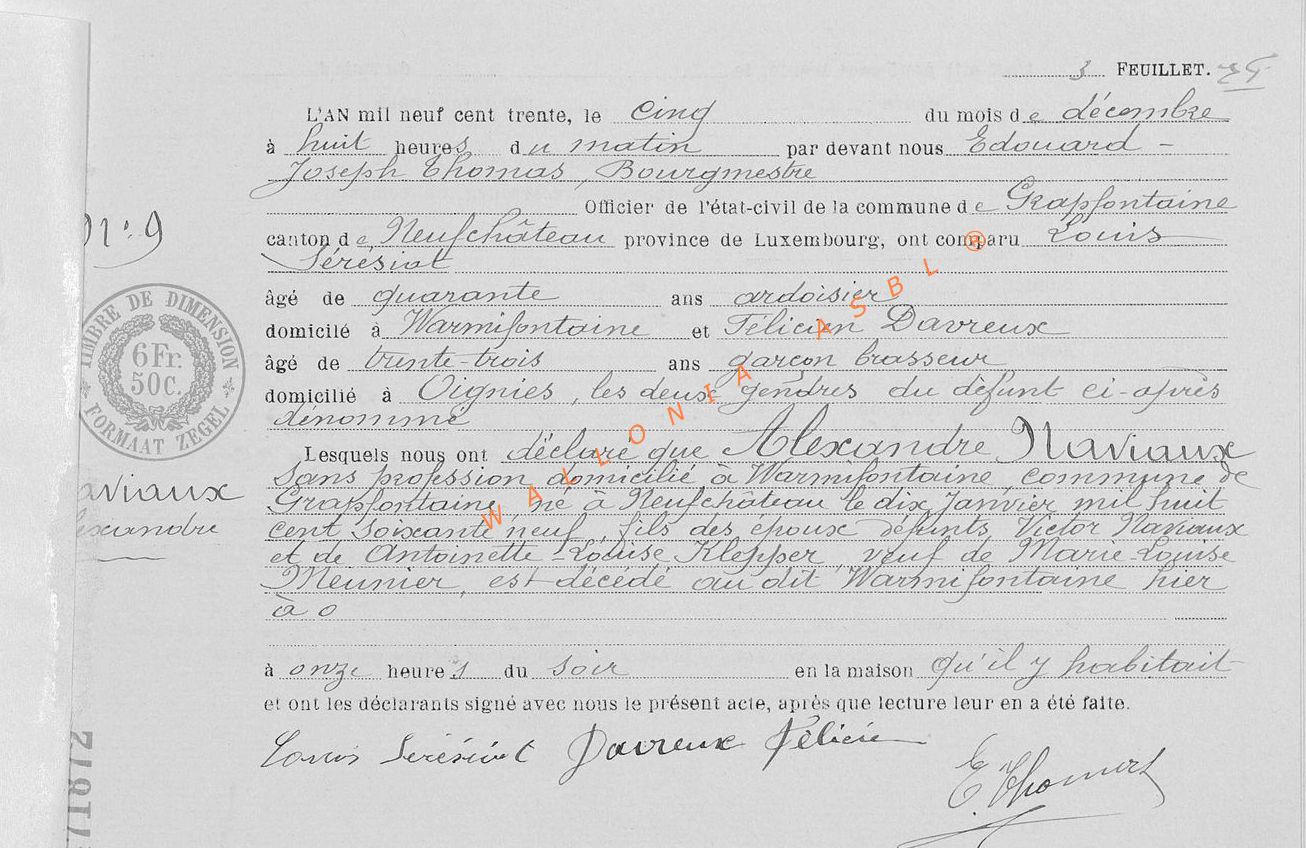 3 FEUILLET.
L'AN mil neuf cent trente, le cinq du mois de décembre
à huit heures du matin par devant nous Edouard -
Joseph Thomas, Bourgmestre
Officier de l'état-civil de la commune de Grapfontaine
N° 9
canton de Neufchâteau province de Luxembourg, ont comparu Louis
Sérésiat
âgé de quarante ans ardoisier
domicilié à Warmifontaine et Félicien Davreux
âgé de trente-trois ans garçon brasseur
domicilié à Oignies, les deux gendres du défunt ci-après
dénommé
TIMBRE DE DIMENSION
6 Fr.
50 C.
FORMAAT ZEGEL
Lesquels nous ont déclaré que Alexandre Naviaux
sans profession domicilié à Warmifontaine, commune de
Grapfontaine né à Neufchâteau le dix Janvier mil huit
cent soixante neuf, fils des époux défunts Victor Naviaux
et de Antoinette-Louise Klepper, veuf de Marie-Louise
Meunier, est décédé au dit Warmifontaine hier
à o
aviaux
lexandre
à onze heures du soir en la maison qu'il y habitait
et ont les déclarants signé avec nous le présent acte, après que lecture leur en a été faite.
Louis Sérésiat Davreux Félicien
E. Thomas
71872
WALLONIA ASBL ®